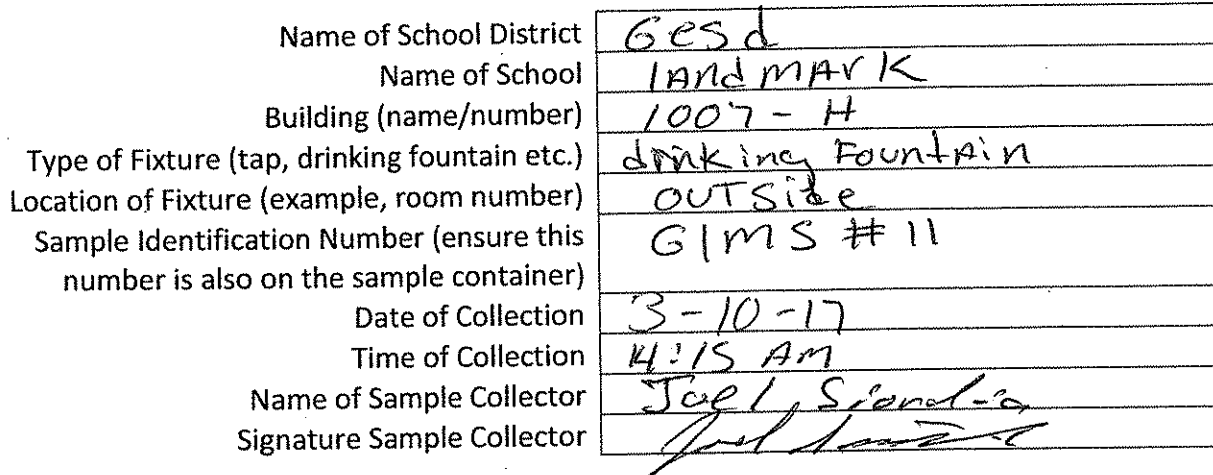 Name of School District Gesd
Name of School lANdmArK
Building (name/number) 1007 - H
Type of Fixture (tap, drinking fountain etc.) drinking FountAin
Location of Fixture (example, room number) OUTSide
Sample Identification Number (ensure this G1MS # 11
number is also on the sample container)
Date of Collection 3-10-17
Time of Collection :15 AM
Name of Sample Collector Joel
Signature Sample Collector